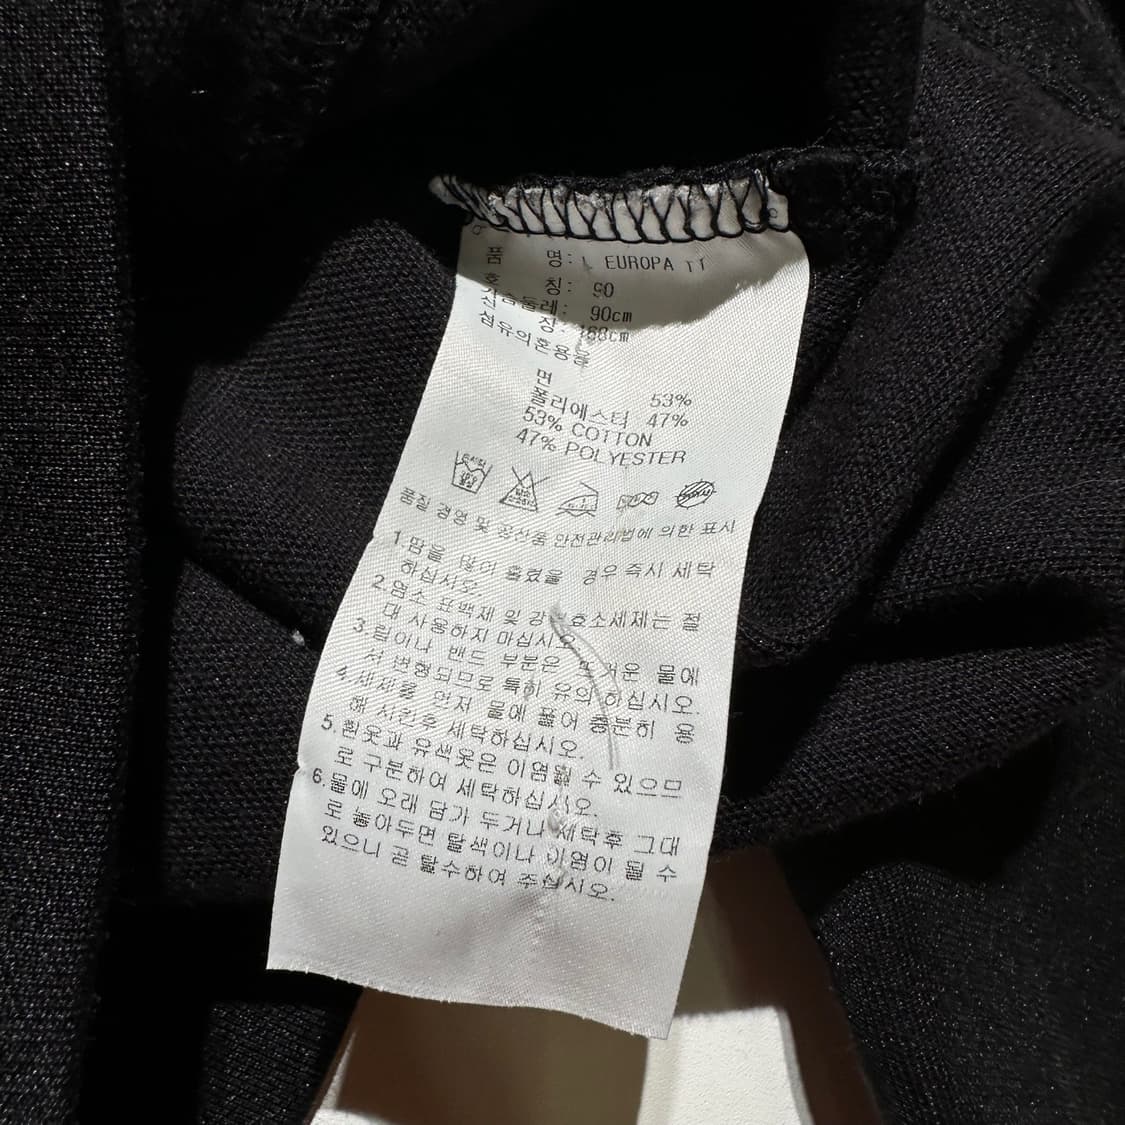 품 명: L EUROPA TT
호 칭: 90
가슴둘레: 90cm
신 장: 168cm
섬유의혼용률
면 53%
폴리에스터 47%
53% COTTON
47% POLYESTER
품질 경영 및 공산품 안전관리법에 의한 표시
1.땀을 많이 흘렸을 경우 즉시 세탁
하십시오.
2.염소 표백제 및 강한효소세제는 절
대 사용하지 마십시오.
3.립이나 밴드 부분은 뜨거운 물에
서 변형되므로 특히 유의 하십시오.
4.세제를 먼저 물에 풀어 충분히 용
해 시킨후 세탁하십시오.
5.흰옷과 유색옷은 이염될 수 있으므
로 구분하여 세탁하십시오.
6.물에 오래 담가 두거나 세탁후 그대
로 놓아두면 탈색이나 이염이 될 수
있으니 곧 탈수하여 주십시오.